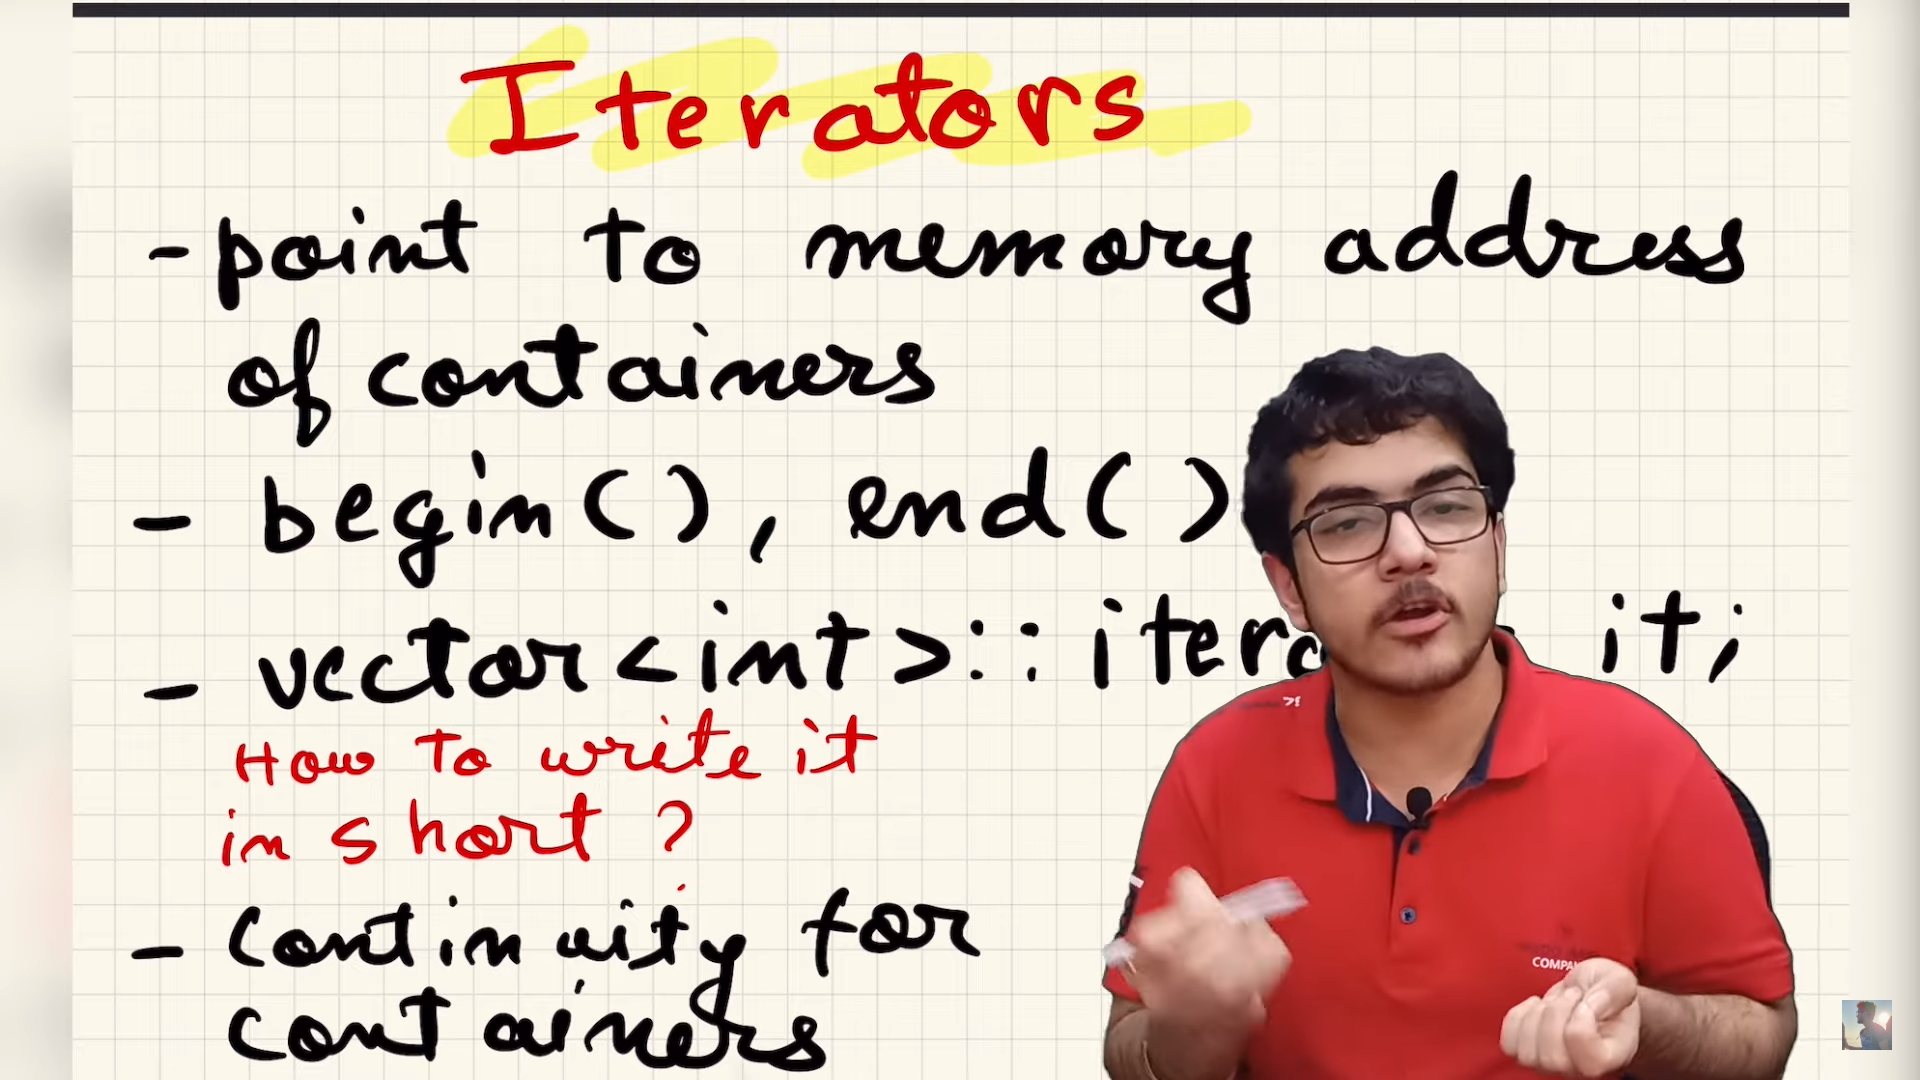 Iterators
- point to memory address
of containers
- begin(), end()
- vector<int>:: it;
How to write it
in short ?
- continuity for
containers